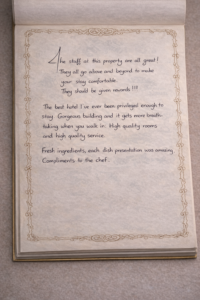 The staff at this property are all great!
They all go above and beyond to make
your stay comfortable.
They should be given rewards !!!
The best hotel I've ever been privileged enough to
stay. Gorgeous building and it gets more breath-
taking when you walk in. High quality rooms
and high quality service.
Fresh ingredients, each dish presentation was amazing.
Compliments to the chef.